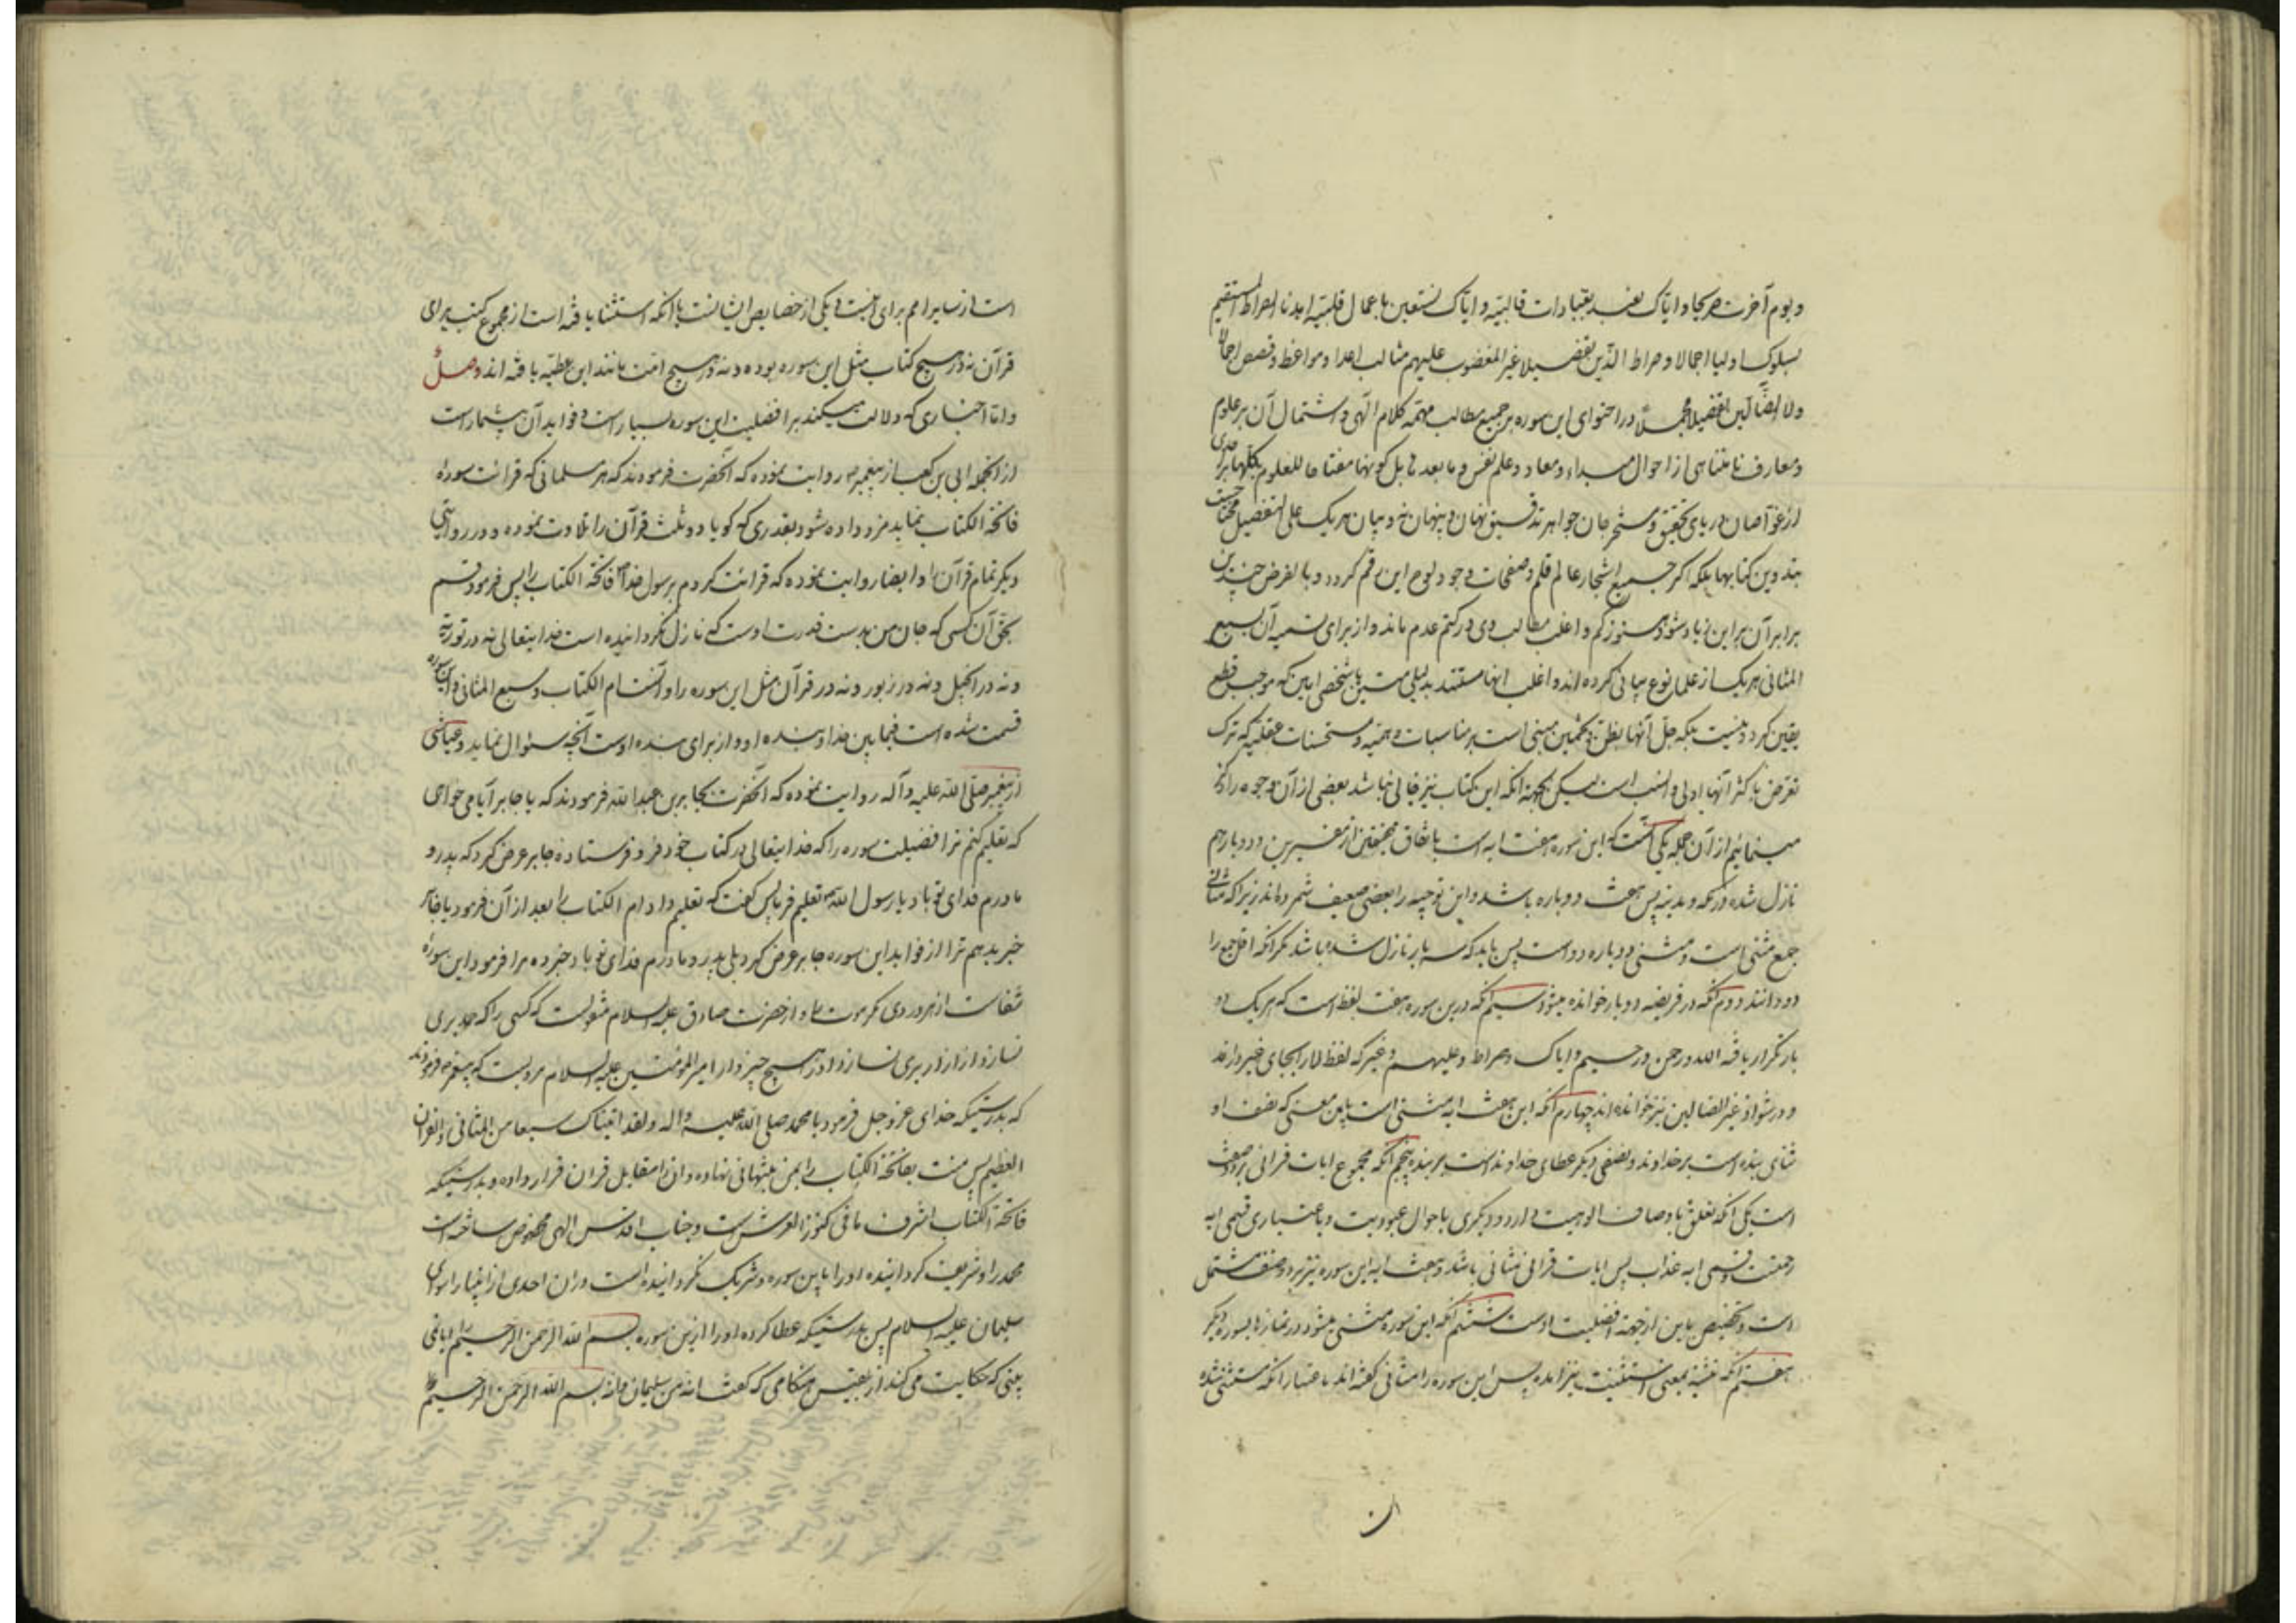 و یوم آخرت صریحا و ایاک نعبد بعبادات قالبیه و ایاک نستعین باعمال قلبیه اهدنا الصراط المستقیم
بسلوک اولیا اجمالا و صراط الذین تفصیلا غیر المغضوب علیهم مثالب اعدا و مواعظ و قصص اجمالا
ولا الضالین تفصیلا در احتوای این سوره بر جمیع مطالب مهمه کلام الهی و اشتمال آن بر علوم
و معارف نامتناهی از احوال مبداء و معاد و علم نفس و ما بعد بل کونها مفتاحا للعلوم بکلها برای
از غواصان دریای تحقیق و مستخرجان جواهر تدقیق نهان و پنهان نه و بیان هریک علی التفصیل محتاج
بتدوین کتابها بلکه اگر جمیع اشجار عالم قلم و صفحات وجود لوح این رقم گردد و بالفرض چندین
برابر آن بر این زیاد شود هنوز کم و اغلب مطالب وی در کتم عدم ماند و از برای تسمیه آن بسبع
المثانی هریک از علما نوع بیانی کرده اند و اغلب انها مستند بدلیلی متین یا شخصی امین که موجب قطع
یقین گردد نیست بلکه جل آنها بظن و تخمین مبنی است بر مناسبات وهمیه و مستحسنات عقلیه که ترک
تعرض باکثر آنها اولی و انسب است لیکن بجهة انکه این کتاب نیز خالی نباشد بعضی از آن وجوه را ذکر
مینمائیم از آن جمله یکی آنست که این سوره هفت ایه است باتفاق محققین از مفسرین و دو بار هم
نازل شده در مکه و مدینه پس هفت دوباره باشد و این توجیه را بعضی ضعیف شمرده اند زیرا که مثانی
جمع مثنی است و مثنی دوباره دو است پس باید که سه بار نازل شده باشد مگر انکه اقل جمع را
دو دانند دوم آنکه در فریضه دو بار خوانده میشود سیم آنکه درین سوره هفت لفظ است که هریک دو
بار تکرار یافته الله و رحمن و رحیم و ایاک و صراط و علیهم و غیر که لفظ لا را بجای غیر دارند
و در شواذ غیر الضالین نیز خوانده اند چهارم آنکه این هفت ایه مثنی است باین معنی که نصف او
ثنای بنده است بر خداوند و نصفی دیگر عطای خداوند است بر بنده پنجم آنکه مجموع ایات قرانی بر دو صنف
است یکی آنکه تعلق باوصاف الوهیت دارد و دیگری باحوال عبودیت و باعتباری قسمی ایه
رحمتست و قسمی ایه عذاب پس ایات قرانی مثانی باشد و هفت ایه این سوره نیز بر دو صنف مشتمل
است و تخصیص باین از جهة افضلیت اوست ششم آنکه این سوره مثنی میشود در نمازها بسوره دیگر
هفتم آنکه تثنیه بمعنی استثنیت نیز امده پس این سوره را مثانی گفته اند باعتبار آنکه مستثنی شده
است از سایر امم برای امت و یکی از خصایص ایشانست یا آنکه استثنا یافته است از مجموع کتب برای
قرآن نه در هیچ کتاب مثل این سوره بوده و نه در هیچ امت مانند این عطیه یافته اند وصل
و اما اخباری که دلالت میکند بر افضلیت این سوره بسیار است و فواید آن بیشمار است
از انجمله ابی بن کعب از پیغمبر روایت نموده که آنحضرت فرمودند که هر مسلمانی که قرائت سورهٔ
فاتحة الکتاب نماید مزد داده شود بقدری که گویا دو ثلث قرآن را تلاوت نموده و در روایتی
دیگر تمام قرآن را و ایضا روایت نموده که قرائت کردم برسول خدا فاتحة الکتاب را پس فرمود قسم
بحق آن کسی که جان من بدست قدرت اوست که نازل نگردانیده است خدایتعالی نه در توریة
و نه در انجیل و نه در زبور و نه در قرآن مثل این سوره را و آنست ام الکتاب و سبع المثانی و این سوره
قسمت شده است فیما بین خدا و بنده او و از برای بنده اوست آنچه سئوال نماید و عیاشی
از پیغمبر صلی الله علیه و آله روایت نموده که آنحضرت بجابر بن عبدالله فرمودند که یا جابر آیا می خواهی
که تعلیم کنم ترا افضیلت سوره را که خدایتعالی در کتاب خود فرو فرستاده جابر عرض کرد که پدر و
مادرم فدای تو باد یا رسول الله تعلیم فرما پس گفت که تعلیم داد ام الکتاب را بعد از آن فرمود یا جابر
خبر بدهم ترا از فواید این سوره جابر عرض کرد بلی پدر و مادرم فدای تو باد خبر ده مرا فرمود این سورهٔ
شفاست از هر دردی مگر موت و از حضرت صادق علیه السلام منقولست که کسی را که حمد بری
نسازد از ازار بری نسازد او را هیچ چیز و از امیر المؤمنین علیه السلام مرویست که پیغمبر فرمودند
که بدرستیکه خدای عز و جل فرمود یا محمد صلی الله علیه و اله و لقد اتیناک سبعا من المثانی و القرآن
العظیم پس منت بفاتحة الکتاب را بمن بتنهائی نهاده و ان را مقابل قران قرار داده و بدرستیکه
فاتحة الکتاب اشرف ما فی کنوز العرش است و جناب اقدس الهی مخصوص ساخته است
محمد را و شریف گردانیده او را باین سوره و شریک نگردانیده است در ان احدی از انبیا را سوای
سلیمان علیه السلام پس بدرستیکه عطا کرده او را ازین سوره بسم الله الرحمن الرحیم را ایا نمی
بینی که حکایت می کند از بلقیس هنگامی که گفت انه من سلیمان و انه بسم الله الرحمن الرحیم